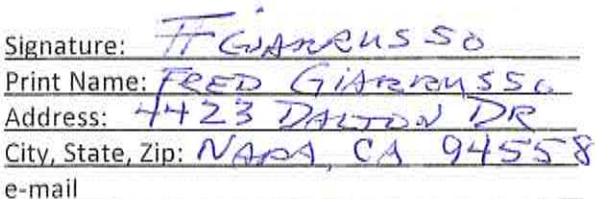 Signature: FGiarrusso
Print Name: FRED GIARRUSSO
Address: 4423 DALTON DR
City, State, Zip: NAPA, CA 94558
e-mail